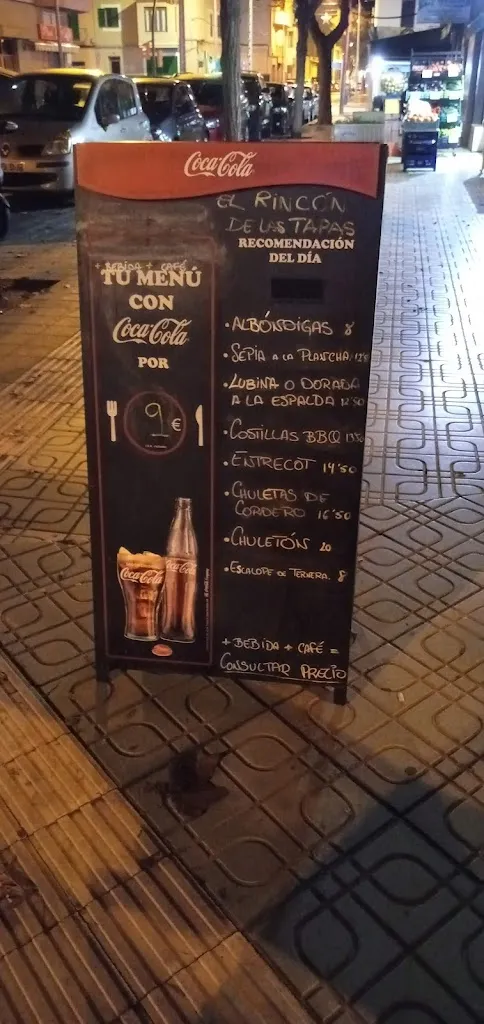 Coca-Cola
EL RINCÓN
DE LAS TAPAS
RECOMENDACIÓN
DEL DÍA
+ BEBIDA + CAFÉ
TU MENÚ
CON
Coca-Cola
POR
9 €
Coca-Cola
Coca-Cola
• ALBÓNDIGAS 8
• SEPIA A LA PLANCHA
• LUBINA O DORADA
A LA ESPALDA 12'50
• COSTILLAS BBQ 13'50
• ENTRECOT 14'50
• CHULETAS DE
CORDERO 16'50
• CHULETÓN 20
• ESCALOPE DE TERNERA. 8
+ BEBIDA + CAFÉ =
CONSULTAR PRECIO